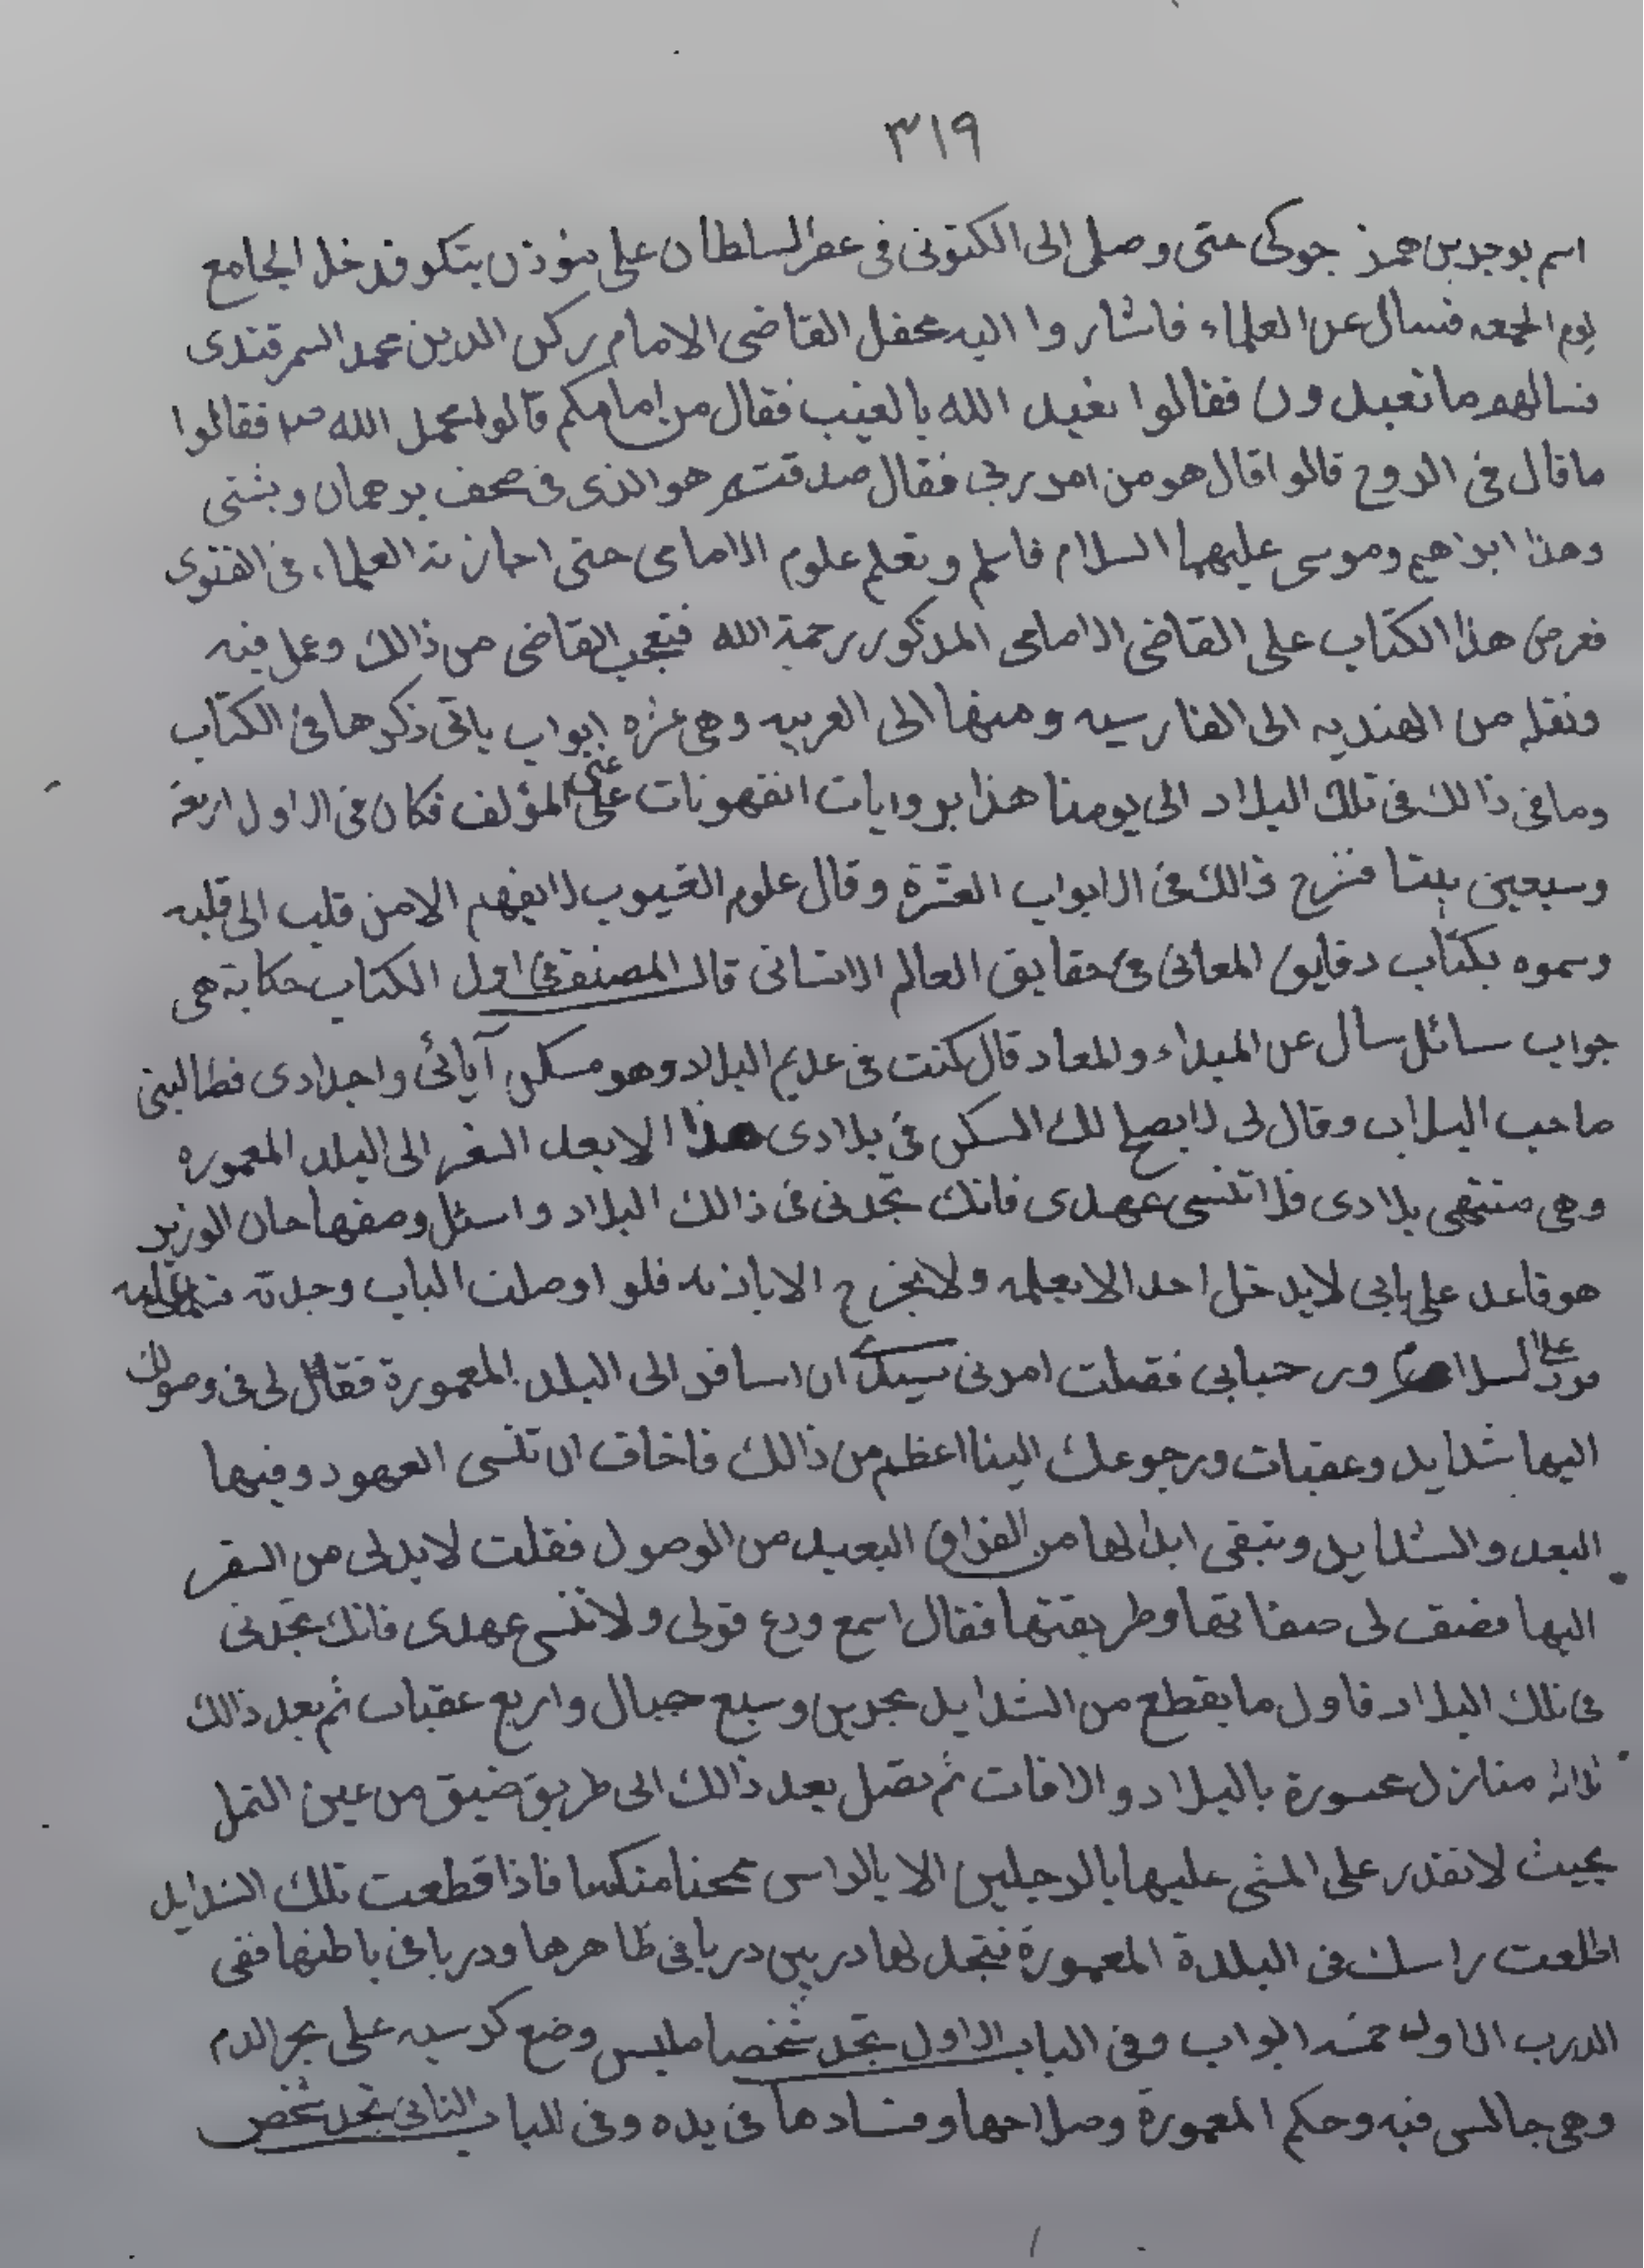 ٣١٩
اسم بوجربن همز جوكى متى وصلى الى الكنونى فى عصر السلطان على يتكو فدخل الجامع
يوم الجمعه فسال عن العلماء فاشاروا اليه محفل القاضى الامام ركن الدين محمد السمرقندى
فسالهم ما تعبدون فقالوا نعبد الله بالغيب فقال من امامكم قالوا محمد الله ص فقالوا
ما قال فى الروح قالوا قال هو من امر ربى فقال صدقتم هو الذى فى صحف برهمان وبشنى
وهذا ابراهيم وموسى عليهما السلام فاسلم وتعلم علوم الاسامى حتى اجازته العلماء فى الفتوى
فعرض هذا الكتاب على القاضى الامامى المذكور رحمة الله فتعجب القاضى من ذالك وعمل فيه
ونقله من الهنديه الى الفارسيه ومنها الى العربيه وهى عشره ابواب ياتى ذكرها فى الكتاب
وما فى ذالك فى تلك البلاد الى يومنا هذا بروايات انفهونات على المؤلف فكان فى الاول اربعة
وسبعين بيتا فنزح ذالك فى الابواب العشرة وقال علوم الغيوب لا يفهم الا من قلب الى قلبه
وسموه بكتاب دقايق المعانى فى حقايق العالم الانسانى قال المصنف فى اول الكتاب حكاية هى
جواب سائل سال عن المبداء والمعاد قال كنت فى عديم البلاد وهو مسكن آبائى واجدادى فطالبنى
صاحب البلاب وقال لى لا يصح لك السكن فى بلادى هذا الا بعد السفر الى البلد المعموره
وهى منتهى بلادى فلا تنسى عهدى فانك تجدنى فى ذالك البلاد واسئل وصفها حان الوزير
هو قاعد على بابى لا يدخل احد الا بعلمه ولا يخرج الا باذنه فلو اوصلت الباب وجدته عليه
فرد على السلام ورحبابى فقصلت امرنى سيدك ان اسافر الى البلد المعمورة فقال لى فى وصولك
اليها شدايد وعقبات ورجوعك الينا اعظم من ذالك فاخاف ان تنسى العهود وفيها
البعد والشدايد وتبقى ابدا لها من الفراق البعيد من الوصول فقلت لابد لى من السفر
اليها فضف لى صفاتها وطريقتها فقال اسمع ودع قولى ولا تنسى عهدى فانك تجدنى
فى تلك البلاد فاول ما يقطع من الشدايد بحرين وسبع جبال واربع عقبات ثم بعد ذالك
ثلاثه منازل عسورة بالبلاد والافات ثم تصل بعد ذالك الى طريق ضيق من عين النمل
بحيث لا تقدر على المشى عليها بالرجلين الا بالراس منكسا فاذا قطعت تلك الشدايد
اطلعت راسك فى البلدة المعمورة فتجد لها دربين دربا فى ظاهرها ودربا فى باطنها ففى
الدرب الاول خمسه ابواب وفى الباب الاول تجد شخصا مليس وضع كرسيه على بحر الدم
وهى جالس فيه وحكم المعمورة وصلاحها وفسادها فى يده وفى الباب الثانى تجد شخص